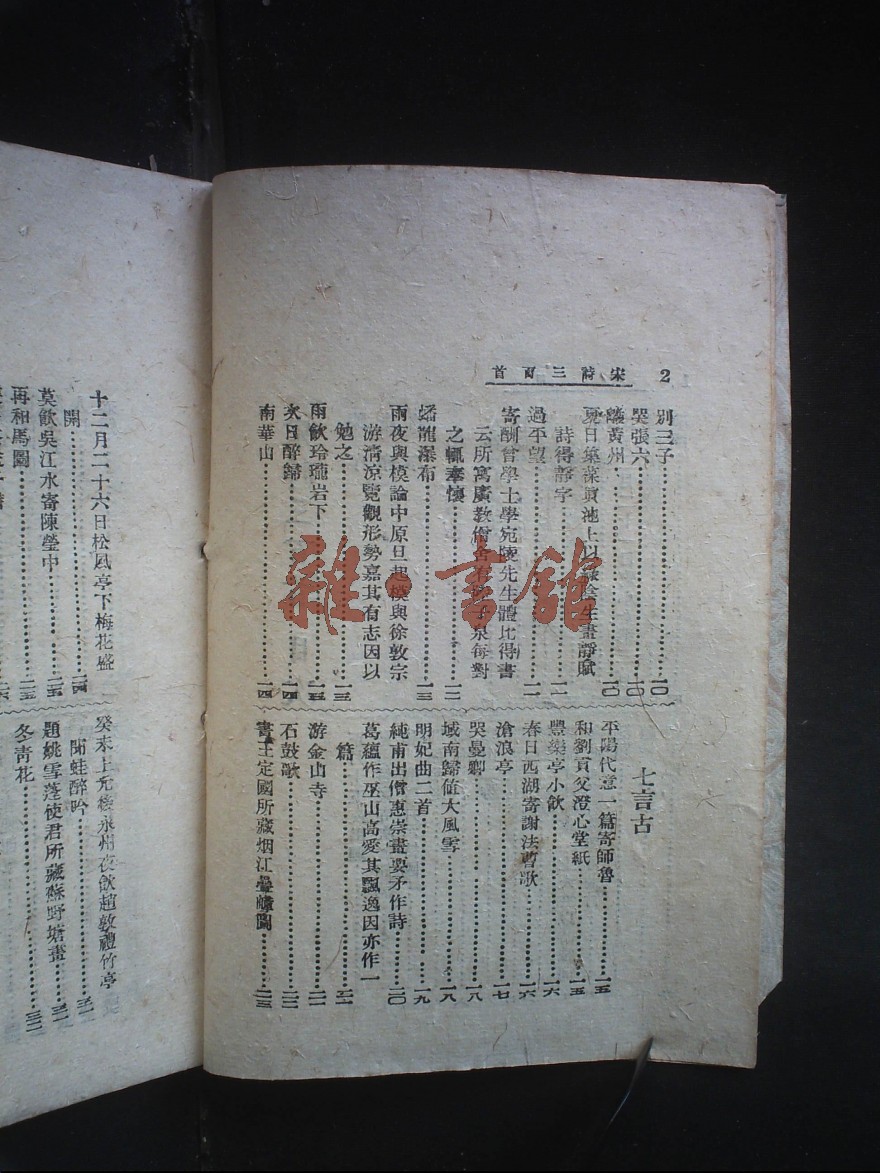 2 宋詩三百首
別三子……一〇
哭張六……一〇
曦黃州……一〇
夏日集葆真池上以綠陰生晝靜賦
詩得靜字……一一
過平望……一一
寄酬曾學士學宛陵先生體比得書
云所寓廣教僧舍有陸子泉每對
之輒奉懷……一二
蟠龍瀑布……一三
雨夜與模論中原旦起模與徐敦宗
游清涼覽觀形勢嘉其有志因以
勉之……一三
雨飲玲瓏岩下……一三
次日醉歸……一四
南華山……一四
七言古
平陽代意一篇寄師魯……一五
和劉貢父澄心堂紙……一五
豐樂亭小飲……一六
春日西湖寄謝法曹歌……一六
滄浪亭……一七
哭曼卿……一八
城南歸値大風雪……一八
明妃曲二首……一九
純甫出僧惠崇畫要矛作詩……二〇
葛蘊作巫山高愛其飄逸因亦作一
篇……二一
游金山寺……二二
石鼓歌……二二
書王定國所藏烟江疊嶂圖……二三
十二月二十六日松風亭下梅花盛
開……二四
莫飲吳江水寄陳瑩中……二五
再和馬圖……二五
癸未上元後永州夜飲趙敦禮竹亭
聞蛙醉吟……三一
題姚雪蓬使君所藏蘇野塘畫……三一
冬靑花……三二
雜·書館